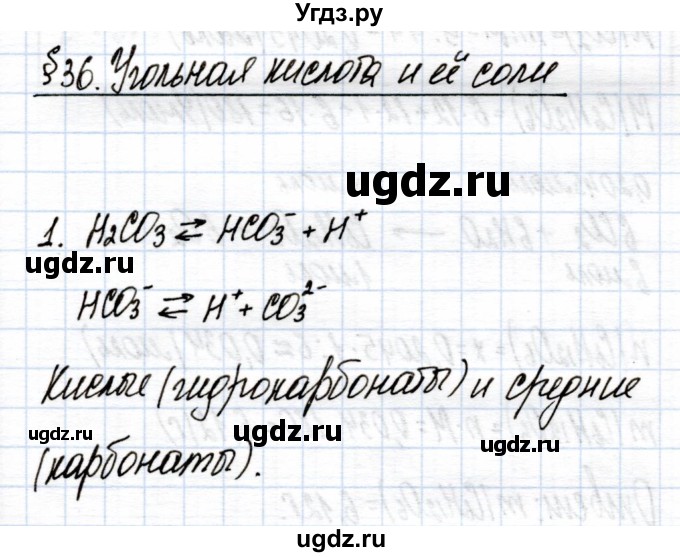 Угдз.ру
§36. Угольная кислота и её соли
ugdz.ru
1. H₂CO₃ ⇄ HCO₃⁻ + H⁺
ugdz.ru
HCO₃⁻ ⇄ H⁺ + CO₃²⁻
ugdz.ru
Кислые (гидрокарбонаты) и средние
ugdz.ru ugdz.ru ugdz.ru
(карбонаты).
ugdz.ru ugdz.ru